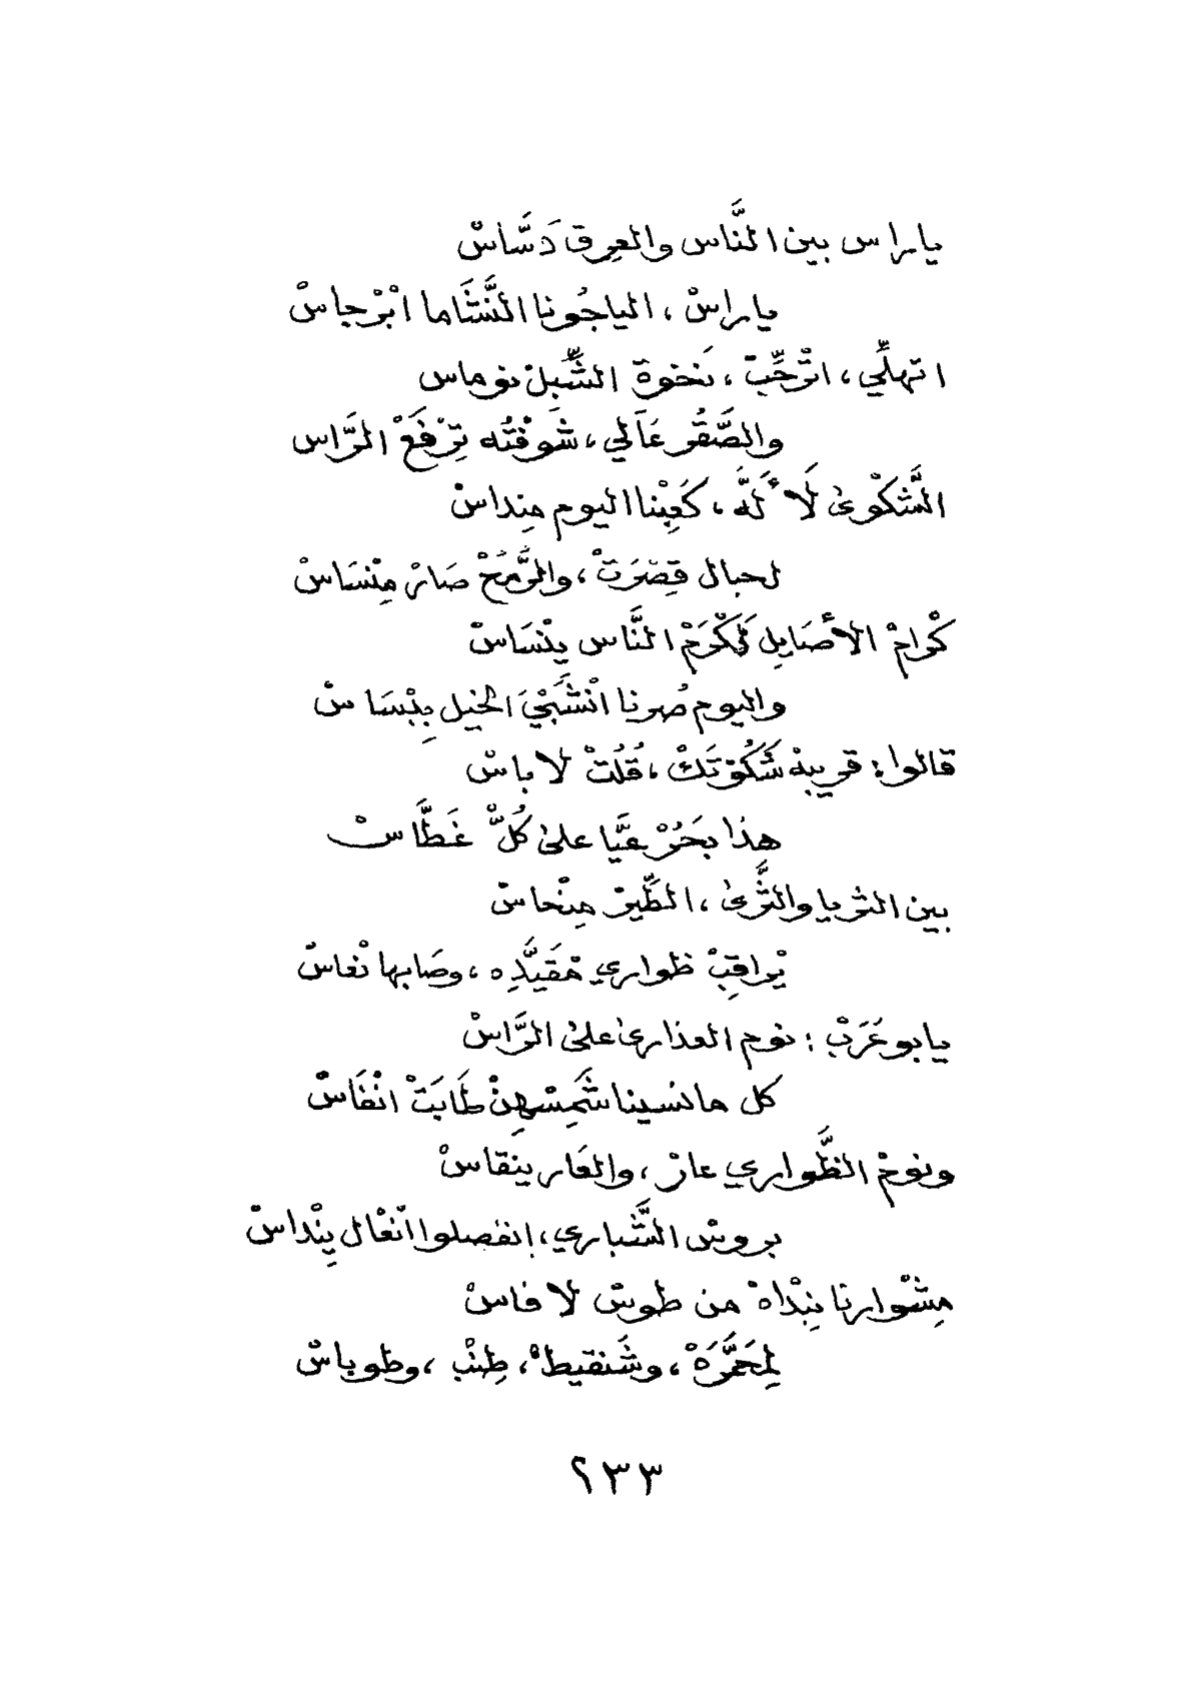 ياراس بين النَّاس والعِرق دَسَّاسْ
ياراسْ ، الياجُونا النَّشَاما ابْرْجاسْ
اتهلِّي ، اتْرَحِّبْ ، نَخْوة الشِّبِلْ نوماس
والصَّقُر عَالي ، شَوْفْتُه تِرْفَعْ الرَّاس
الشَّكْوىٰ لَلأَلَلَّه ، كَعِبْنا اليوم مِنداسْ
لحبال قِصْرَتْ ، والرُّمُحْ صَارْ مِنْسَاسْ
كْرامْ الأصَايِل لَكْرَمْ النَّاس يِنْسَاسْ
واليوم صُرنا انْشَبِّيَ الخيل بِبْسَاسْ
قالوا : قريبهْ شَكُوْتَكْ ، قُلُتْ لا باسْ
هذا بَحَرْ عَيَّا علىٰ كُلّْ غَطَّاسْ
بين الثريا والثَّرىٰ ، الطَّيرْ مِنْحاسْ
يْراقِبْ ظواري مْقَيَّدِه ، وصَابها نْعاسْ
يابو عَرَبْ : نوم العذارىٰ علىٰ الرَّاسْ
كل مانسينا شَمِسْهِنْ طَابَتْ انْفَاسْ
ونومْ الظَّواري عارْ ، والعَار ينقاسْ
بروسْ الشَّباري ، إنفصلوا انْعْال يِنْداسْ
مِشْوارنا نِبْداهْ من طوسْ لا فاسْ
لمِحَمَّرَهْ ، وشَنقيطْ ، طِنْب ، وطوباسْ
٢٣٣